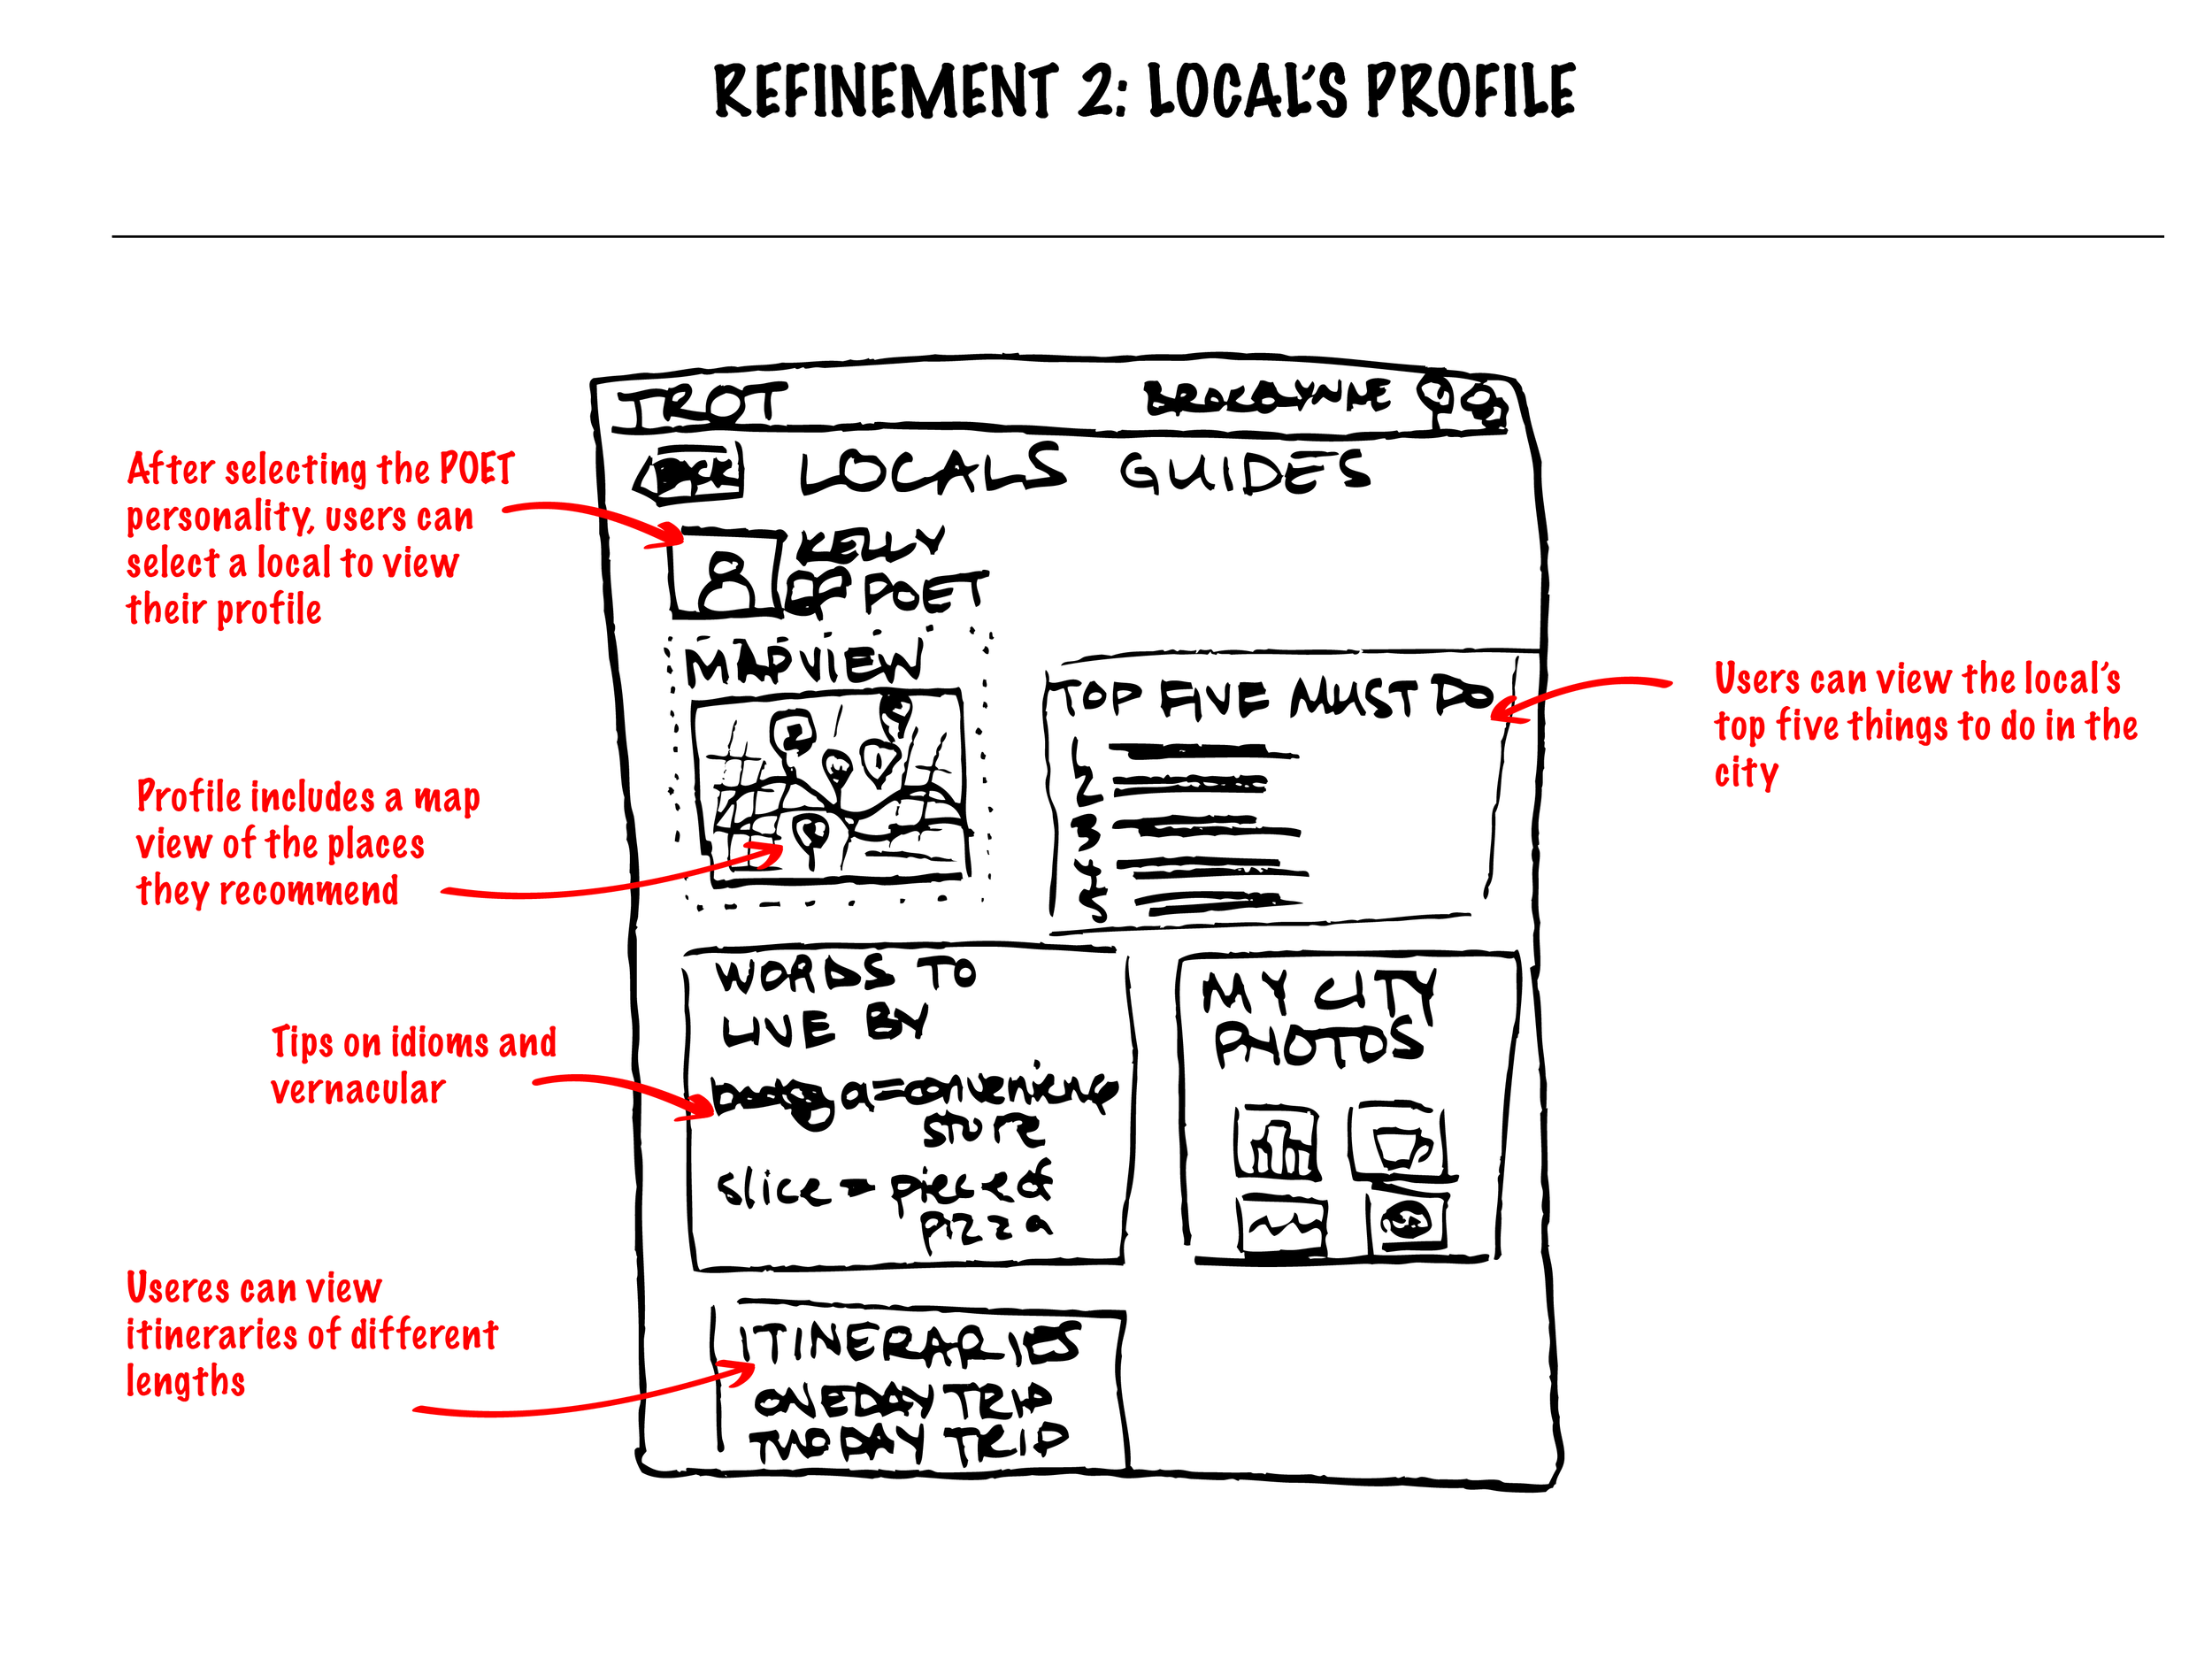 REFINEMENT 2: LOCAL'S PROFILE
TROT
LOCALS GUIDES
After selecting the POET
personality, users can
select a local to view
their profile
KELLY
POET
MAP VIEW
TOP FIVE MUST DO
1
2
3
4
5
Users can view the local's
top five things to do in the
city
Profile includes a map
view of the places
they recommend
WORDS TO
LIVE BY
a = convenience
store
slice = piece of
pizza
Tips on idioms and
vernacular
MY CITY
PHOTOS
Useres can view
itineraries of different
lengths
ITINERARIES
ONE DAY TRIP
TWO DAY TRIP